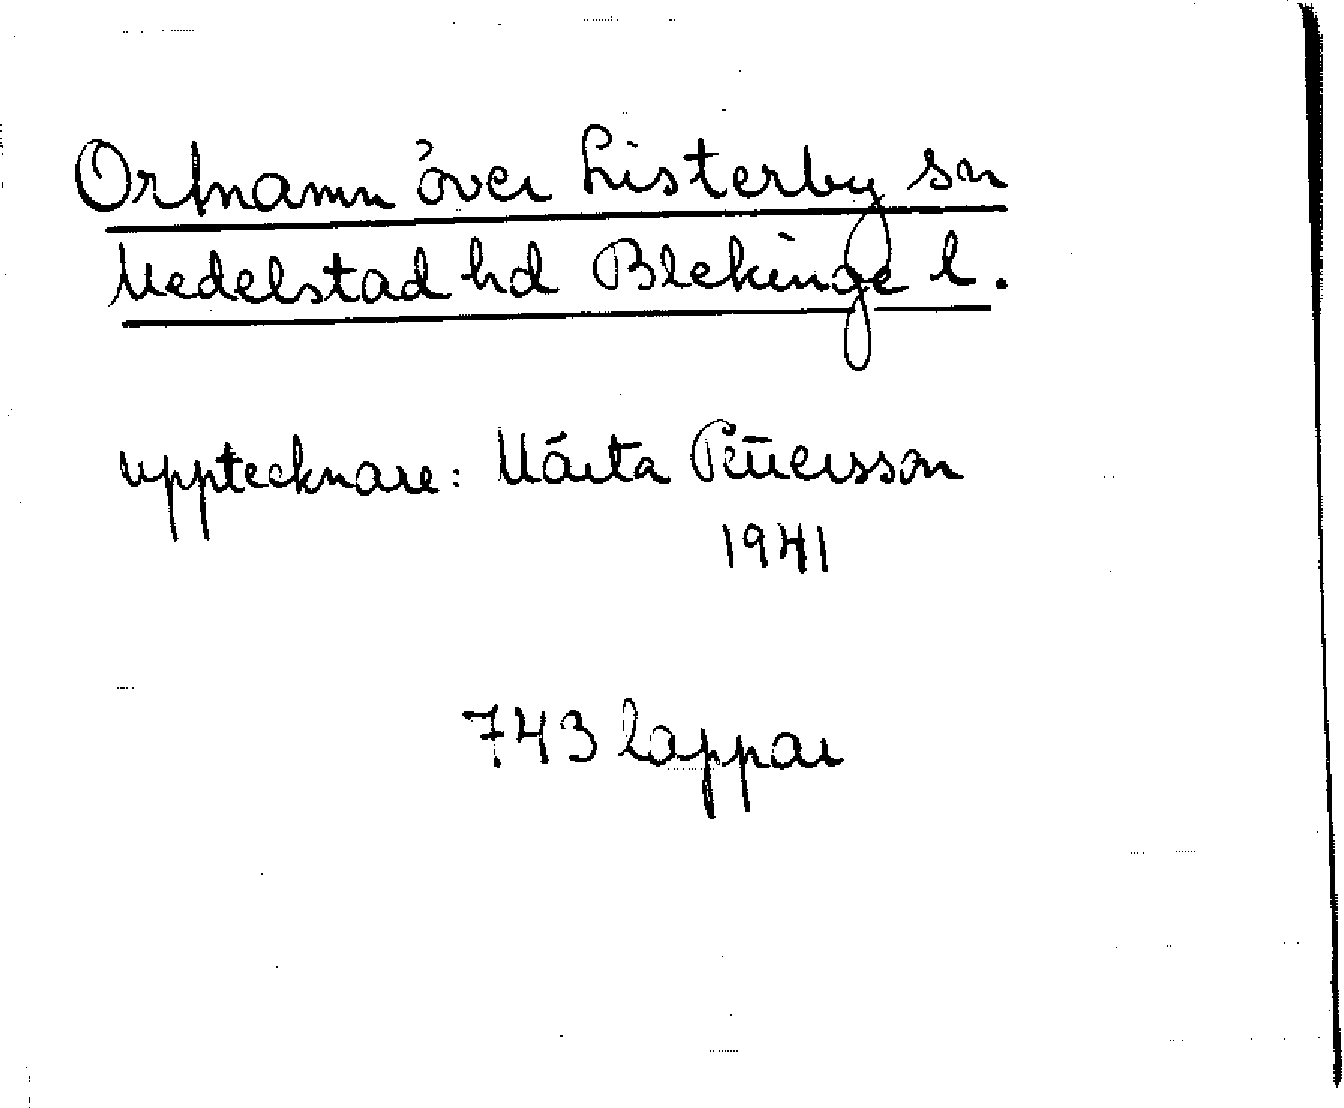 Ortnamn över Listerby sn
Medelstad hd Blekinge l.
upptecknare: Märta Pettersson
1941
743 lappar